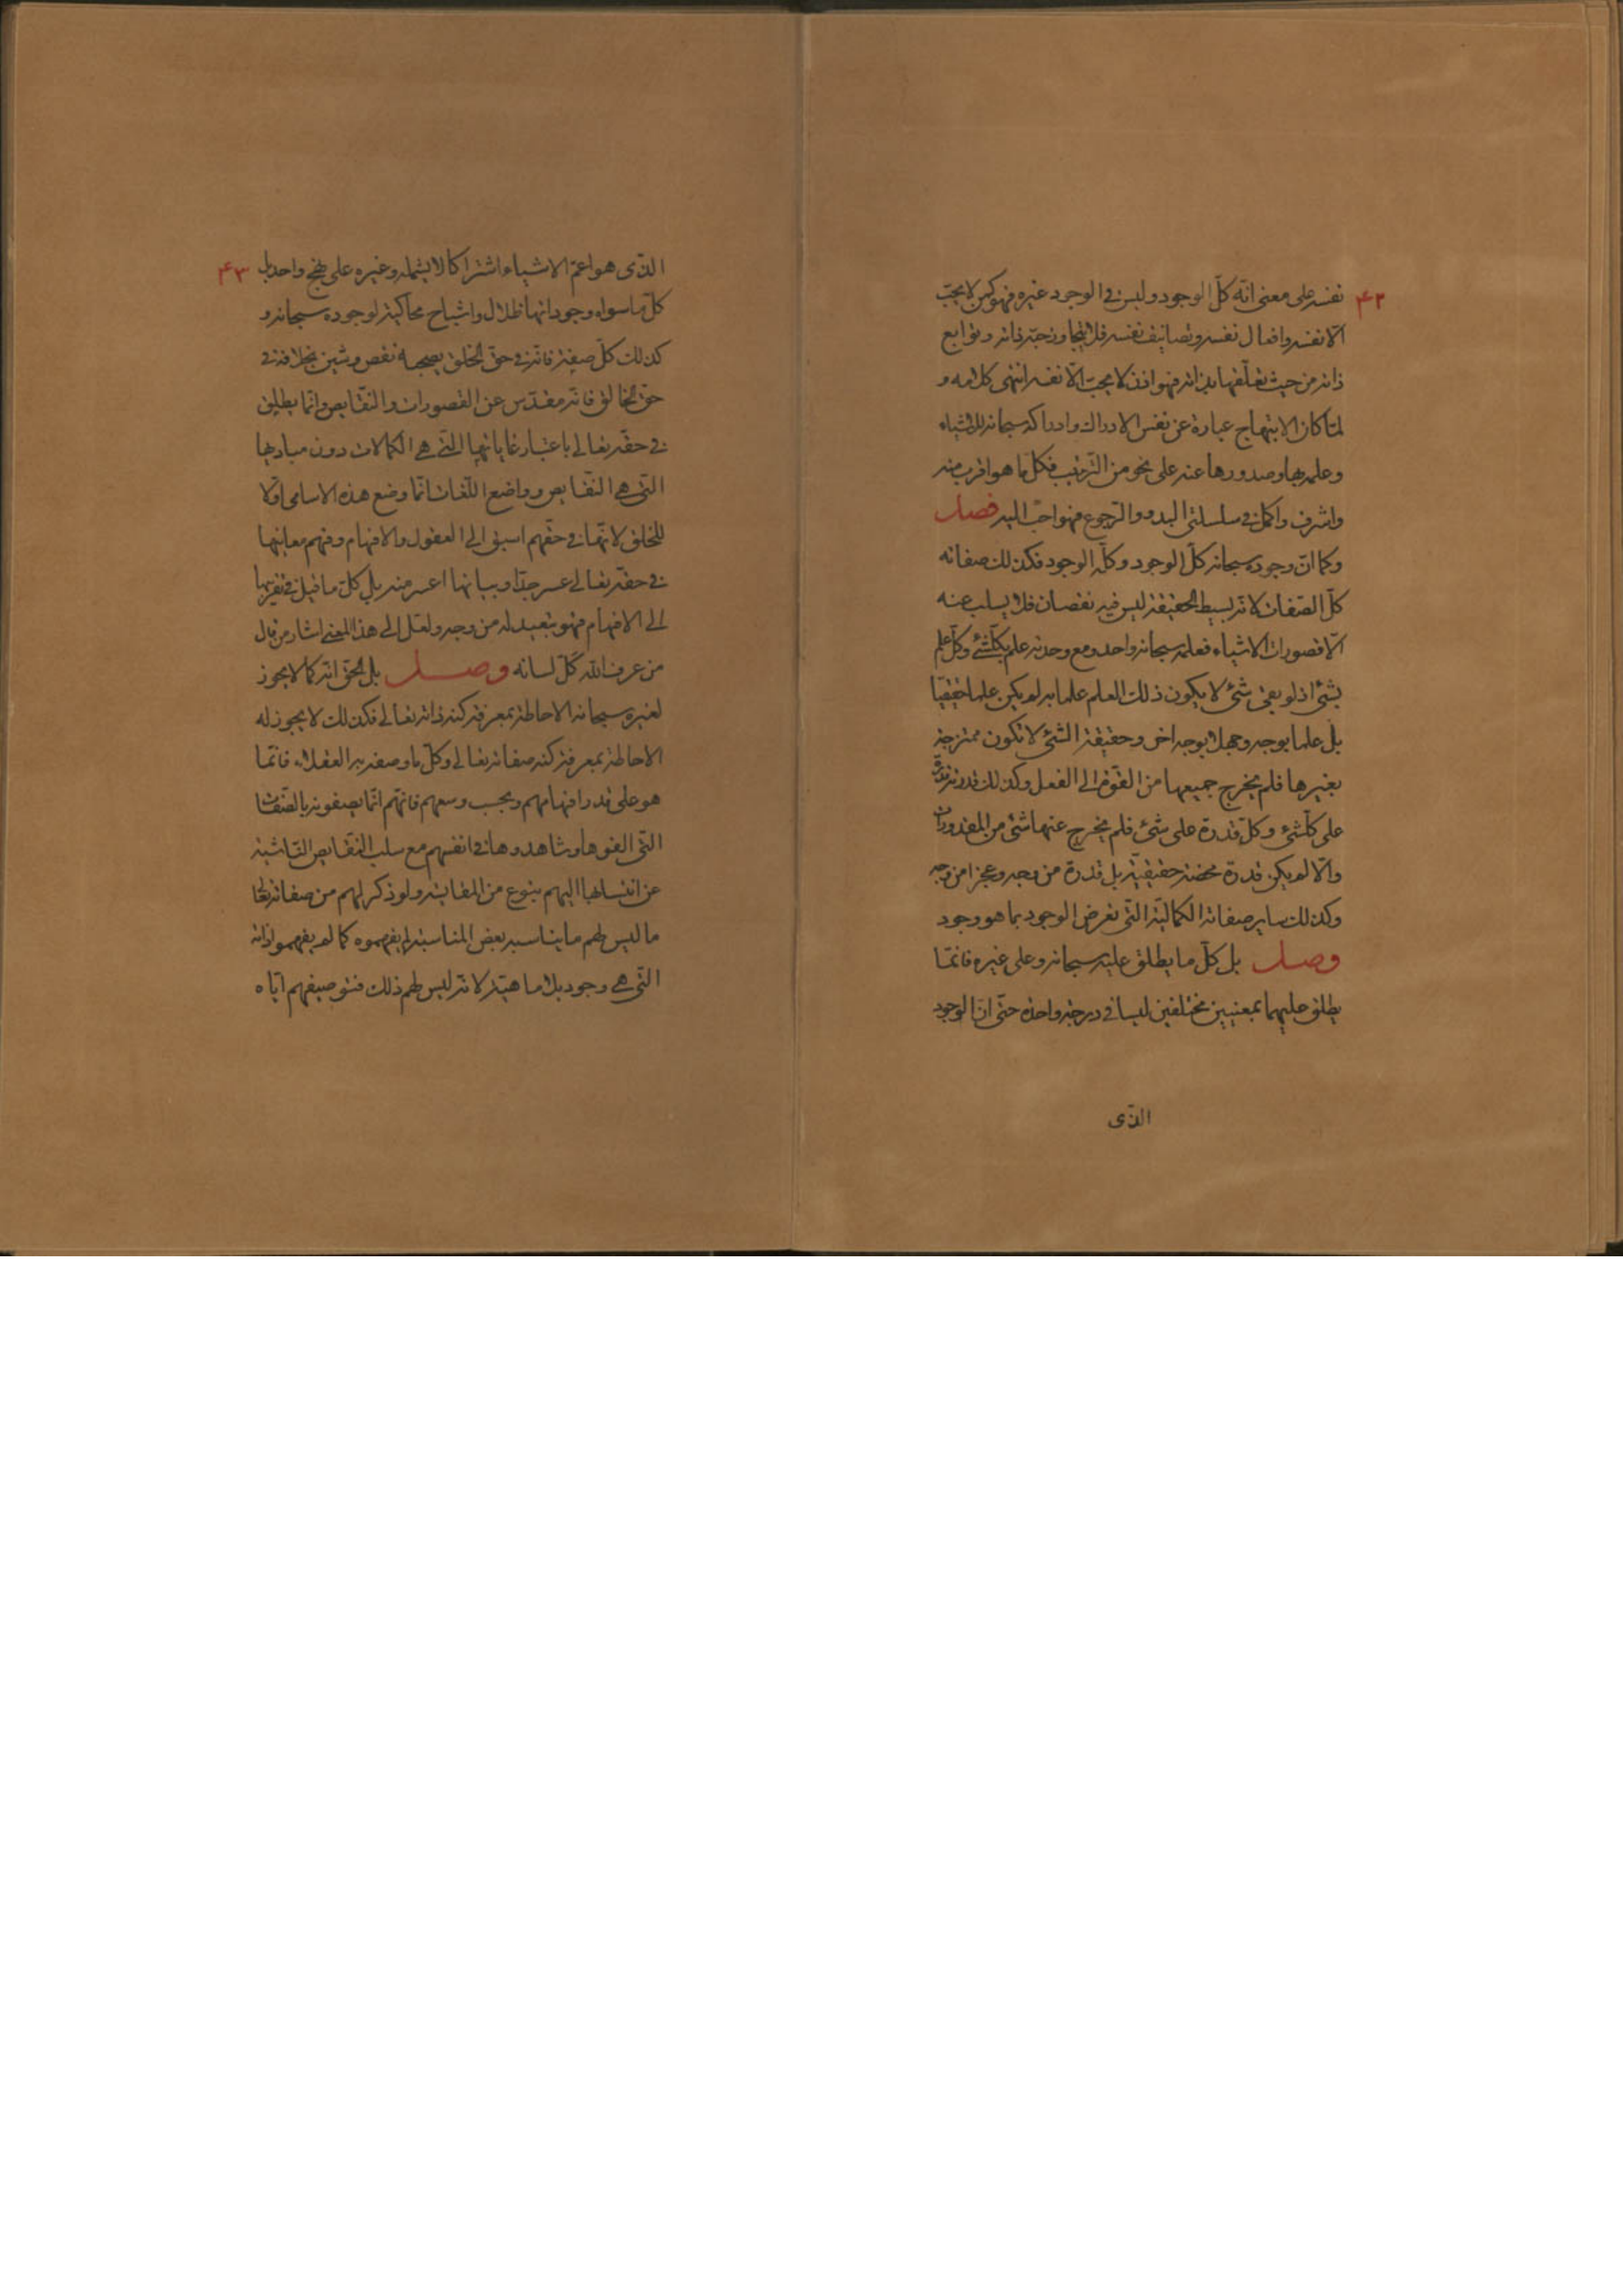 ۴۲
نفسه على معنى انّه كلّ الوجود وليس فى الوجود غيره فهو كمن لا يحبّ
الّا نفسه وافعال نفسه وتصانيف نفسه فلا يتجاوز حبّه ذاته وتوابع
ذاته من حيث تعلّقها بذاته فهو اذن لا يحبّ الّا نفسه انتهى كلامه و
لمّا كان الابتهاج عبارة عن نفس الادراك وادراكه سبحانه للاشياء
وعلمه بها وصدورها عنه على نحو من الترتيب فكلّ ما هو اقرب منه
واشرف واكمل فى سلسلتى البدو والرجوع فهو احبّ اليه فصل
وكما انّ وجوده سبحانه كلّ الوجود وكلّه الوجود فكذلك صفاته
كلّ الصّفات لانّه بسيط الحقيقة ليس فيه نقصان فلا يسلب عنه
الّا قصورات الاشياء فعلمه سبحانه واحد ومع وحدته علم بكلّ شئ وكلّ علم
بشئ اذ لو بقى شئ لا يكون ذلك العلم علما به لم يكن علما حقيقيّا
بل علما بوجه وجهلا بوجه اخر وحقيقة الشئ لا تكون ممتزجة
بغيرها فلم يخرج جميعها من القوّة الى الفعل وكذلك قدرته قدرة
على كلّ شئ وكلّ قدرة على شئ فلم يخرج عنها شئ من المقدورات
والّا لم يكن قدرة محضة حقيقيّة بل قدرة من وجه وعجزا من وجه
وكذلك ساير صفاته الكماليّة التّى تعرض الوجود بما هو وجود
وصل بل كلّ ما يطلق عليه سبحانه وعلى غيره فانّما
يطلق عليهما بمعنيين مختلفين ليسا فى درجة واحدة حتّى انّ الوجود
الذّى
۴۳
الذّى هو اعمّ الاشياء اشتراكا لا يشمله وغيره على نهج واحد بل
كلّ ما سواه وجوداتها ظلال واشباح محاكية لوجوده سبحانه و
كذلك كلّ صفة فانّه فى حقّ الخلق يصحبها نقص وشين بخلافه فى
حقّ الخالق فانّه مقدّس عن القصورات والنّقايص وانّما يطلق
فى حقّه تعالى باعتبار غاياتها التّى هى الكمالات دون مباديها
التّى هى النّقايص وواضع اللّغات انّما وضع هذه الاسامى اوّلا
للخلق لانّها فى حقّهم اسبق الى العقول والافهام وفهم معانيها
فى حقّه تعالى عسر جدّا وبيانها اعسر منه بل كلّ ما قيل فى تقريبها
الى الافهام فهو تبعيد له من وجه ولعلّ الى هذا المعنى اشار من قال
من عرف الله كلّ لسانه وصل بل الحقّ انّه كما لا يجوز
لغيره سبحانه الاحاطة بمعرفة كنه ذاته تعالى فكذلك لا يجوز له
الاحاطة بمعرفة كنه صفاته تعالى وكلّ ما وصفه به العقلاء فانّما
هو على قدر افهامهم وبحسب وسعهم فانّهم انّما يصفونه بالصّفات
التّى الفوها وشاهدوها فى انفسهم مع سلب النّقايص النّاشية
عن انتسابها اليهم بنوع من المقايسة ولو ذكر لهم من صفاته تعالى
ما ليس لهم ما يناسبه بعض المناسبة لم يفهموه كما لم يفهموا ذاته
التّى هى وجود بلا ماهيّة لانّه ليس لهم ذلك فتوصيفهم ايّاه